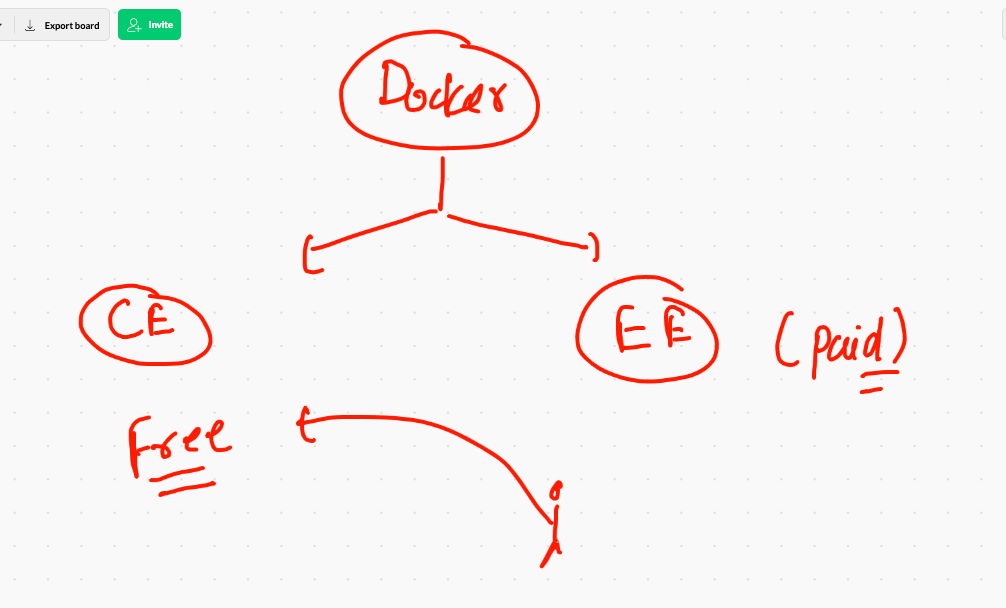 Export board Invite
Docker
CE
EE (paid)
Free